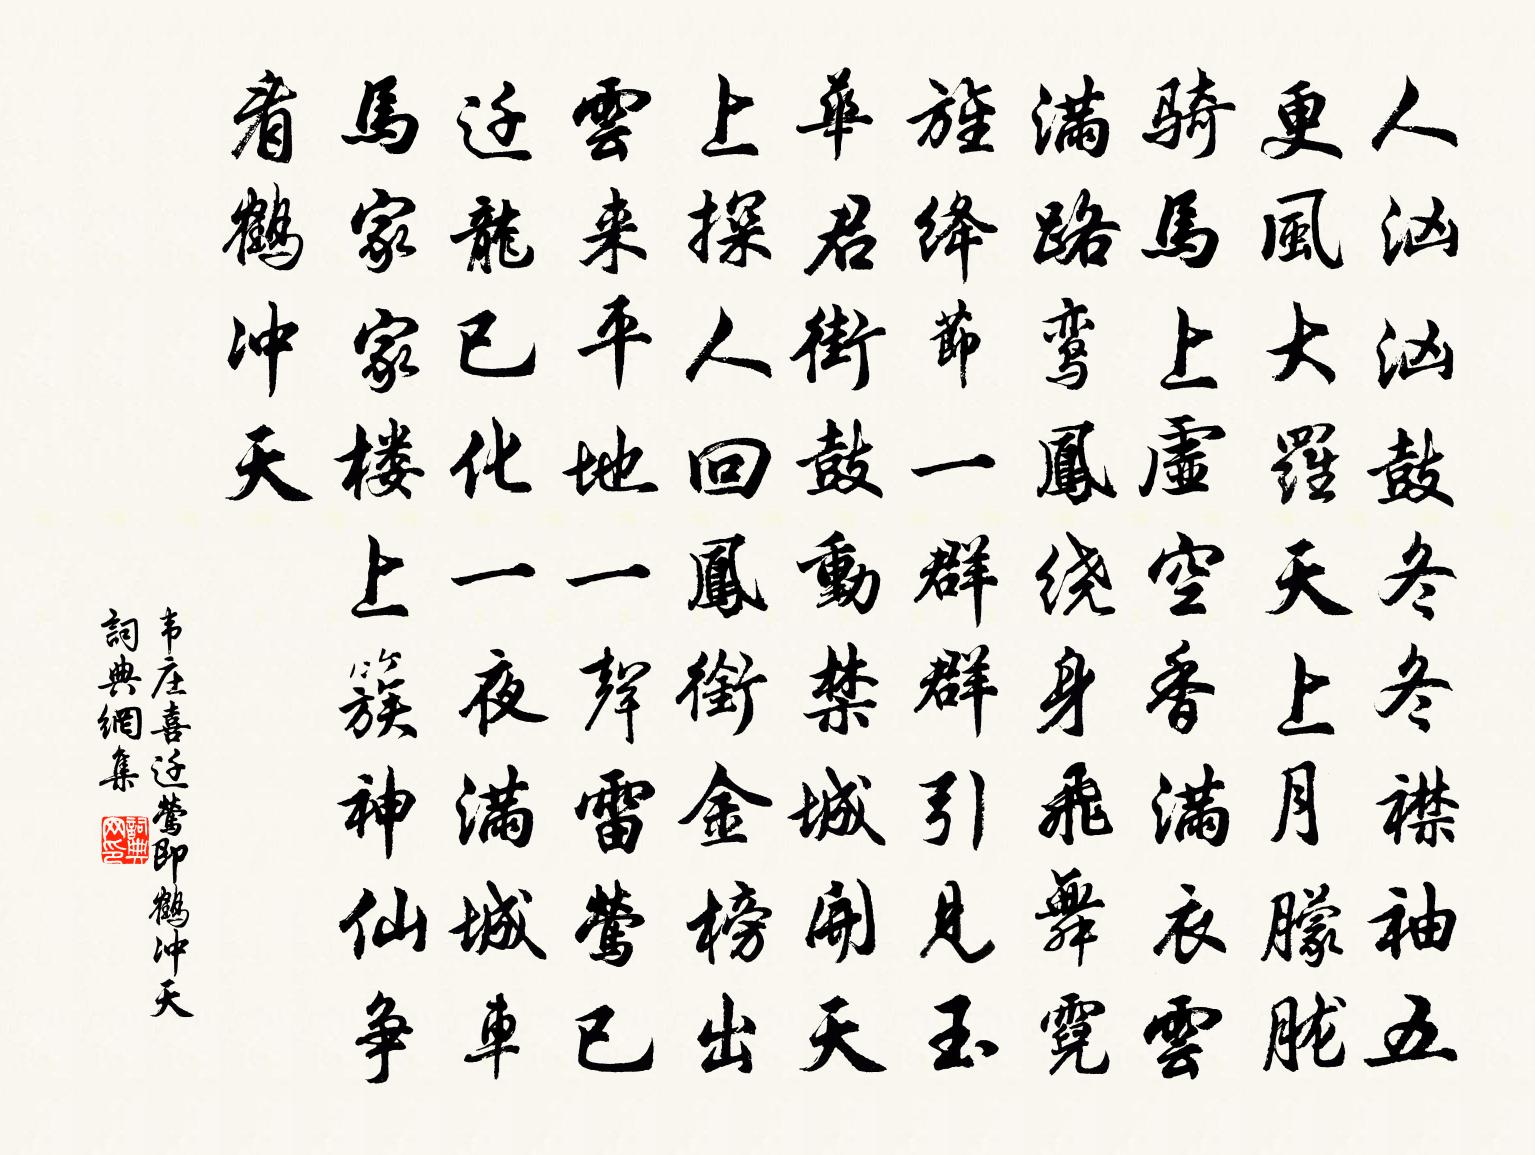 人汹汹鼓冬冬襟袖五
更風大羅天上月朦胧
骑馬上虚空香满衣雲
满路鸾鳳绕身飛舞霓
旌绛節一群群引見玉
華君街鼓動禁城開天
上探人回鳳銜金榜出
雲来平地一聲雷莺已
迁龍已化一夜满城車
馬家家楼上簇神仙争
看鶴冲天
韦庄喜迁莺即鶴冲天
詞典網集
詞典网印